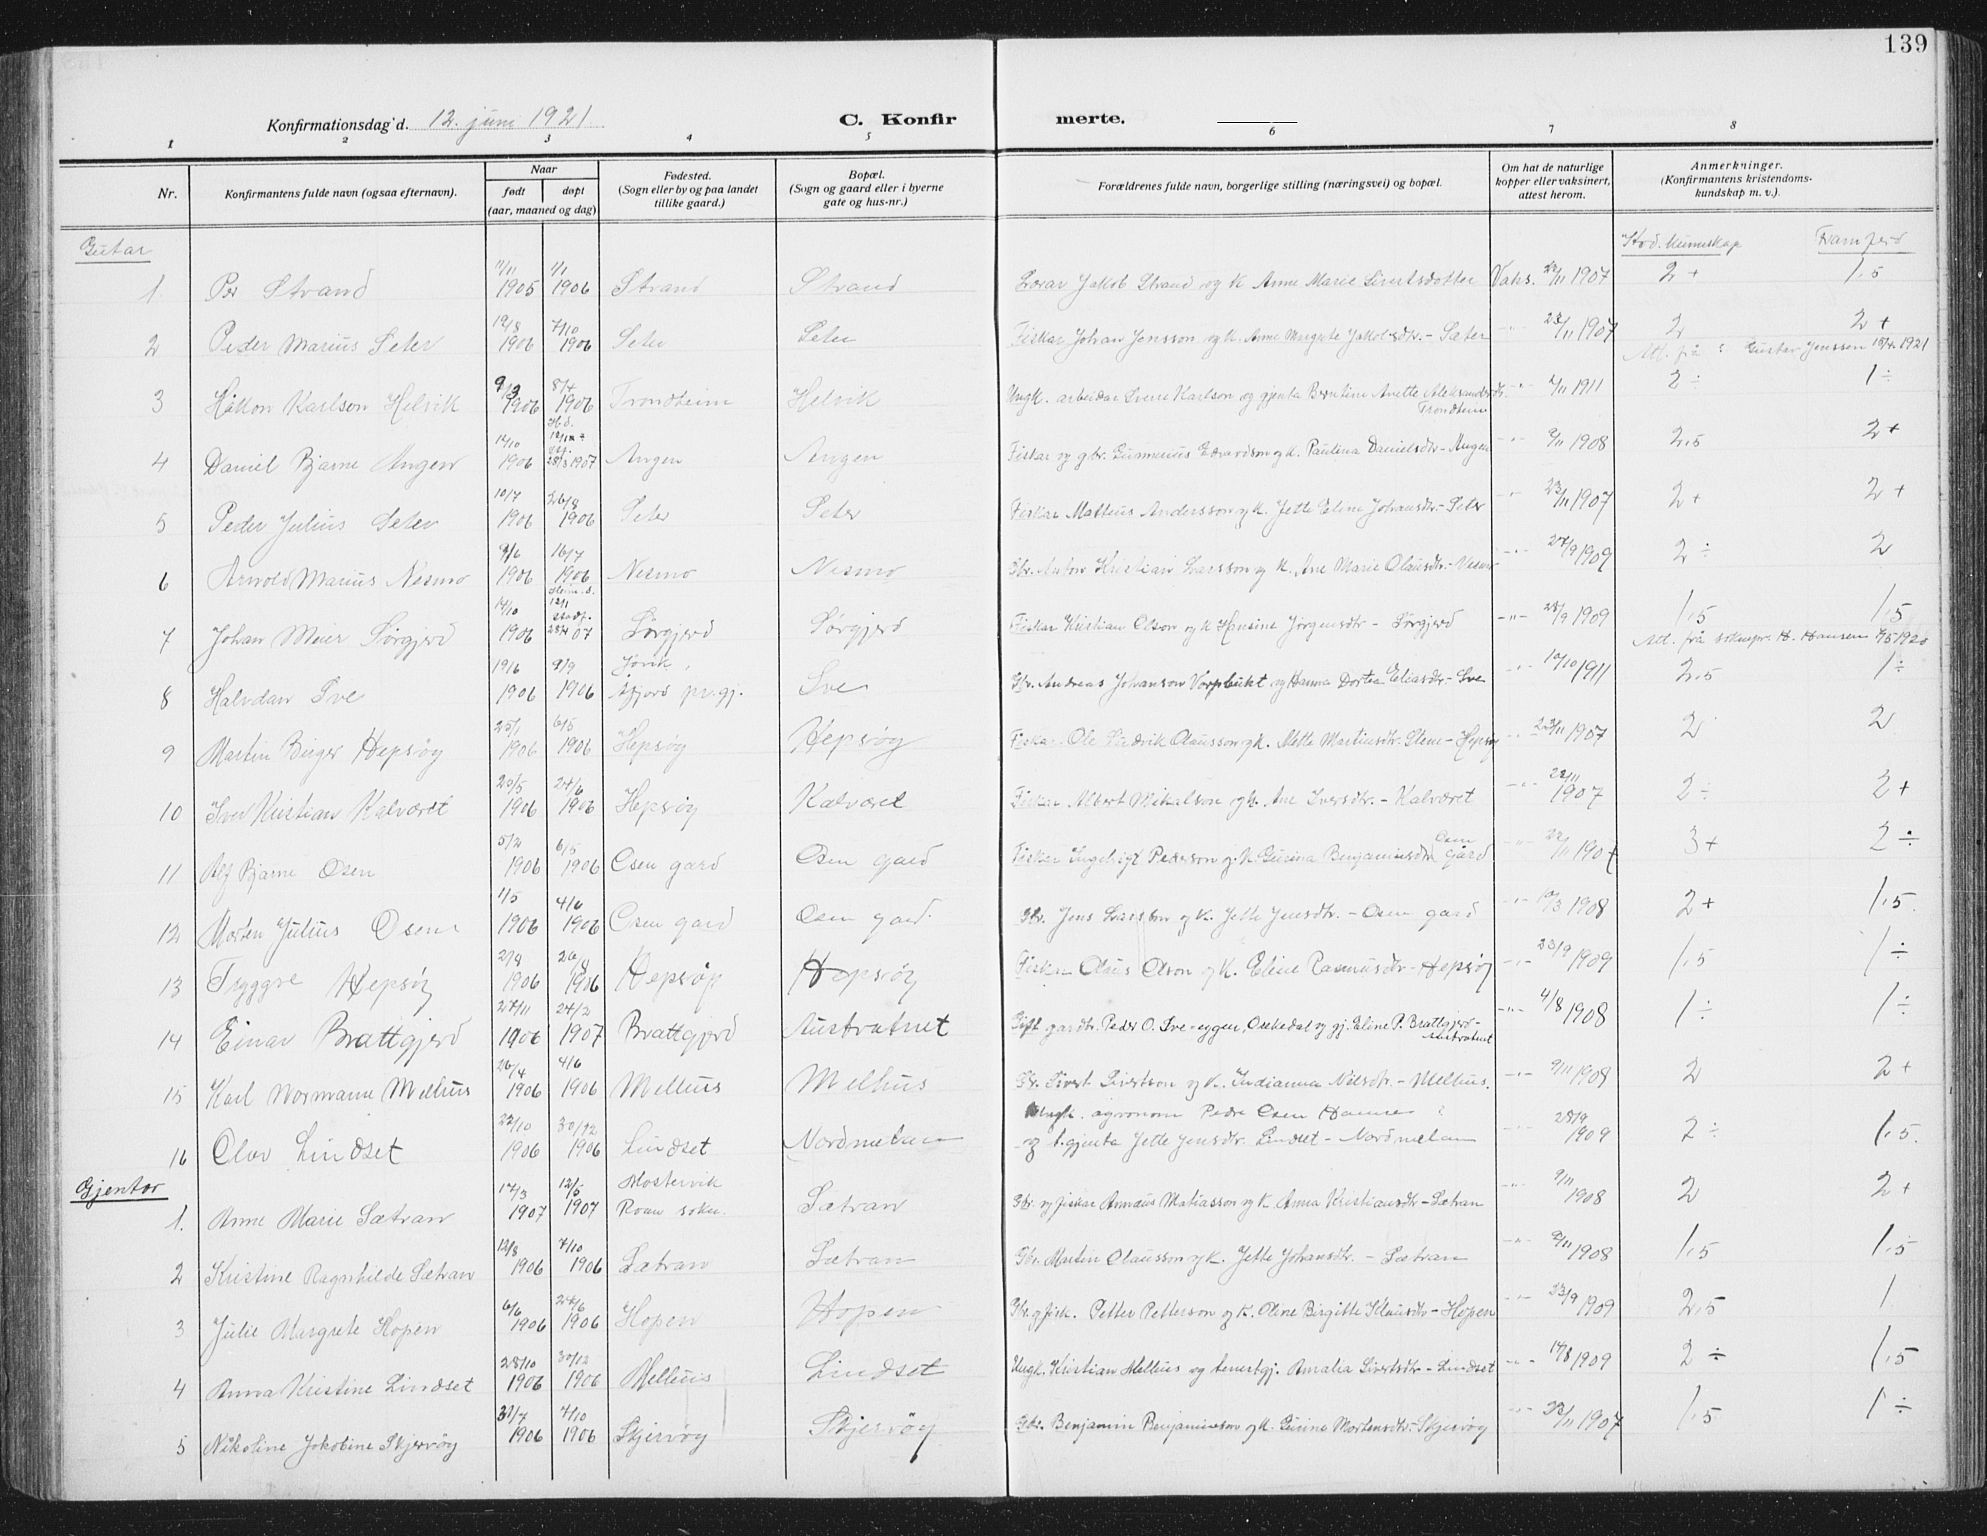 139
Konfirmationsdag d. 12. juni 1921 C. Konfir merte.
1 2 3 4 5 6 7 8
Nr. Konfirmantens fulde navn (ogsaa efternavn). Naar født døpt (aar, maaned og dag) Fødested. (Sogn eller by og paa landet tillike gaard.) Bopæl. (Sogn og gaard eller i byerne gate og hus-nr.) Forældrenes fulde navn, borgerlige stilling (næringsvei) og bopæl. Om hat de naturlige kopper eller vaksinert, attest herom. Anmerkninger. (Konfirmantens kristendomskundskap m. v.).
Gutar Kunnskap Framferd
1. Per Strand 1905 1/1 1906 Strand Strand Lærar Jakob Strand og K. Anne Marie Sivertsdotter Vaks. 22/11 1907 2+ 1,5
2 Peder Marius Seter 19/8 1906 7/10 1906 Seter Seter Fiskar Johan Jensson og K. Anne Margrete Jakobsdtr. - Sæter -"- 23/11 1907 2 2+
Att. frå Gustav Jenssen 1921
3 Håkon Karlson Helvik 9/3 1906 8/4 1906 Trondheim Helvik Ungk. arbeidar Karlson og gjenta Berntine Anette Aleksandersdtr. Trondheim -"- 1911 2÷ 1÷
4 Daniel Bjarne Angen 14/10 1906 28/3 1907 Angen Angen Fiskar og gbr. Gunnerius Edvardson og K. Paulina Danielsdtr. - Angen -"- 9/11 1908 2,5 2+
5 Peder Julius Seter 10/7 1906 26/8 1906 Seter Seter Fiskar Matteus Andersson og K. Jette Eline Johansdtr. - Seter -"- 23/11 1907 2+ 2+
6 Arnold Marius Nesmo 9/6 1906 16/7 1906 Nesmo Nesmo Gbr. Anton Kristian Larsson og K. Ane Marie Olausdtr. - Nesmo -"- 27/9 1909 2÷ 2
7 Johan Meier Sørgjerd 14/10 1906 07 Sørgjerd Sørgjerd Fiskar Kristian Olson og K. Hensine Jørgensdtr - Sørgjerd -"- 28/9 1909 1,5 1,5
Att. frå soknepr. H. Hansen 1920
8 Halvdan Sve 19/6 1906 9/9 1906 Jøvik, Åfjord pr.gj. Sve Gbr. Andreas Johanson Vorpbukt og Hanna Dortea Eliasdtr. - Sve -"- 10/10 1911 2,5 1÷
9 Martin Birger Hepsøy 25/1 1906 6/5 1906 Hepsøy Hepsøy Fiskar Ole Olausson og K. Mette Martinsdtr. Stene - Hepsøy -"- 23/11 1907 2 2
10 Iver Kristian Kalværet 20/5 1906 24/6 1906 Hepsøy Kalværet Fiskar Albert Mikalson og K. Ane Iversdtr. - Kalværet -"- 22/11 1907 2÷ 2+
11 Alf Bjarne Osen 5/2 1906 6/5 1906 Osen gard Osen gard Fiskar Ingebrigt Pederson og K. Gurina Benjaminsdtr. Osen gård -"- 22/11 1907 3+ 2÷
12 Morten Julius Osen 1/5 1906 4/6 1906 Osen gard Osen gard. Gbr. Jens Larsson og K. Jette Jensdtr. - Osen gard -"- 10/3 1908 2+ 1,5.
13 Tryggve Hepsøy 2/8 1906 26/8 1906 Hepsøy Hepsøy Fiskar Olaus Olson og K. Eline Rasmusdtr - Hepsøy -"- 23/9 1909 1,5 1÷
14 Einar Brattgjerd 27/11 1906 24/2 1907 Brattgjerd Austvatnet Gift gardbr. Peder O. Sve-eggen, Osekedal og gj. Eline P. Brattgjerd - Austvatnet -"- 4/8 1908 1÷ 1÷
15 Karl Normann Melhus 26/4 1906 4/6 1906 Melhus Melhus Gbr. Sivert Sivertson og K. Indianna Nilsdtr. - Melhus. -"- 9/11 1908 2 2+
16 Olav Lindset 22/10 1906 30/12 1906 Lindset Nordmelan Ungk. agronom Peder Osen Hamse ? og t. gjenta Jette Jensdtr. Lindset - Nordmelan -"- 28/9 1909 2÷ 1,5.
Gjentor
1. Anne Marie Sætran 17/3 1907 12/5 1907 Mostervik Roan sokn. Sætran Gbr. og fiskar Annæus Matiasson og K. Anna Kristiansdtr - Sætran -"- 9/11 1908 2 2+
2 Kristine Ragnhilde Sætran 12/8 1906 7/10 1906 Sætran Sætran Gbr. Martin Olausson og K. Jette Johansdtr. - Sætran -"- 9/11 1908 1,5 1,5
3 Julie Margrete Hopen 6/6 1906 24/6 1906 Hopen Hopen Gbr. og fisk. Petter Petterson og K. Oline Birgitte Klausdtr - Hopen -"- 23/9 1909 2,5 1
4 Anna Kristine Lindset 28/10 1906 30/12 1906 Melhus Lindset Ungk. Kristian Melhus og tenestgj. Amalia Sivertsdtr - Lindset -"- 17/8 1909 2÷ 1,5
5 Nikoline Jokobine Skjervøy 31/7 1906 7/10 1906 Skjervøy Skjervøy Gbr. Benjamin Benjaminson og K. Gurina Mortensdtr - Skjervøy -"- 22/11 1907 1,5 1÷